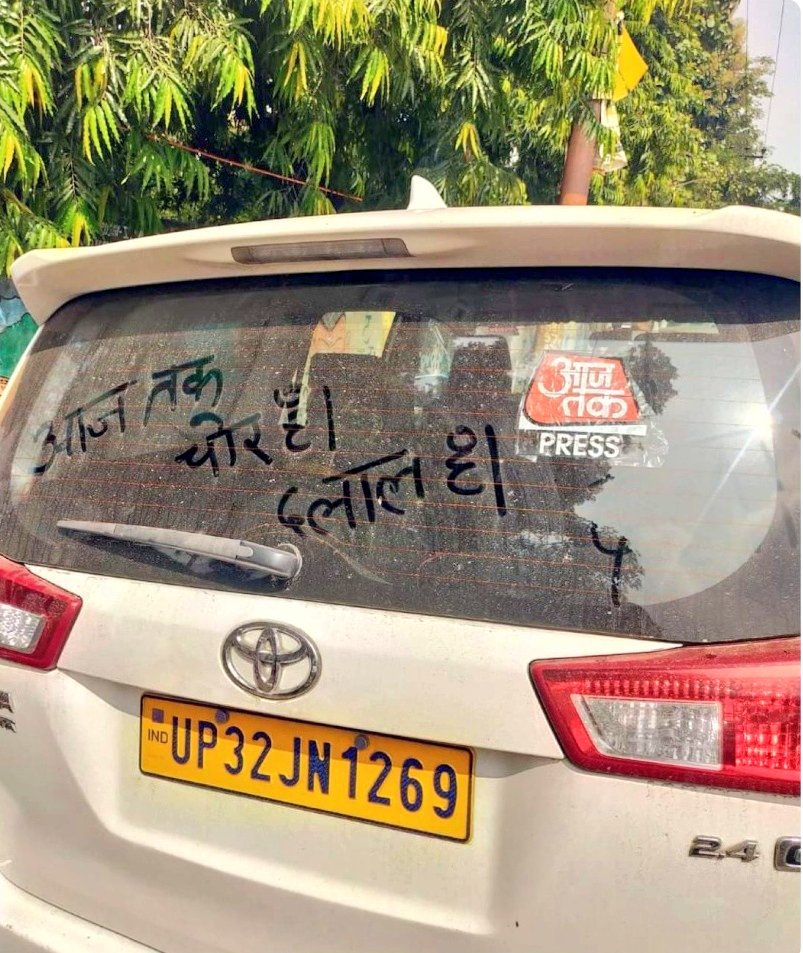 आज तक
चोर है।
दलाल है।
आज
तक
PRESS
IND UP32JN1269
2.4